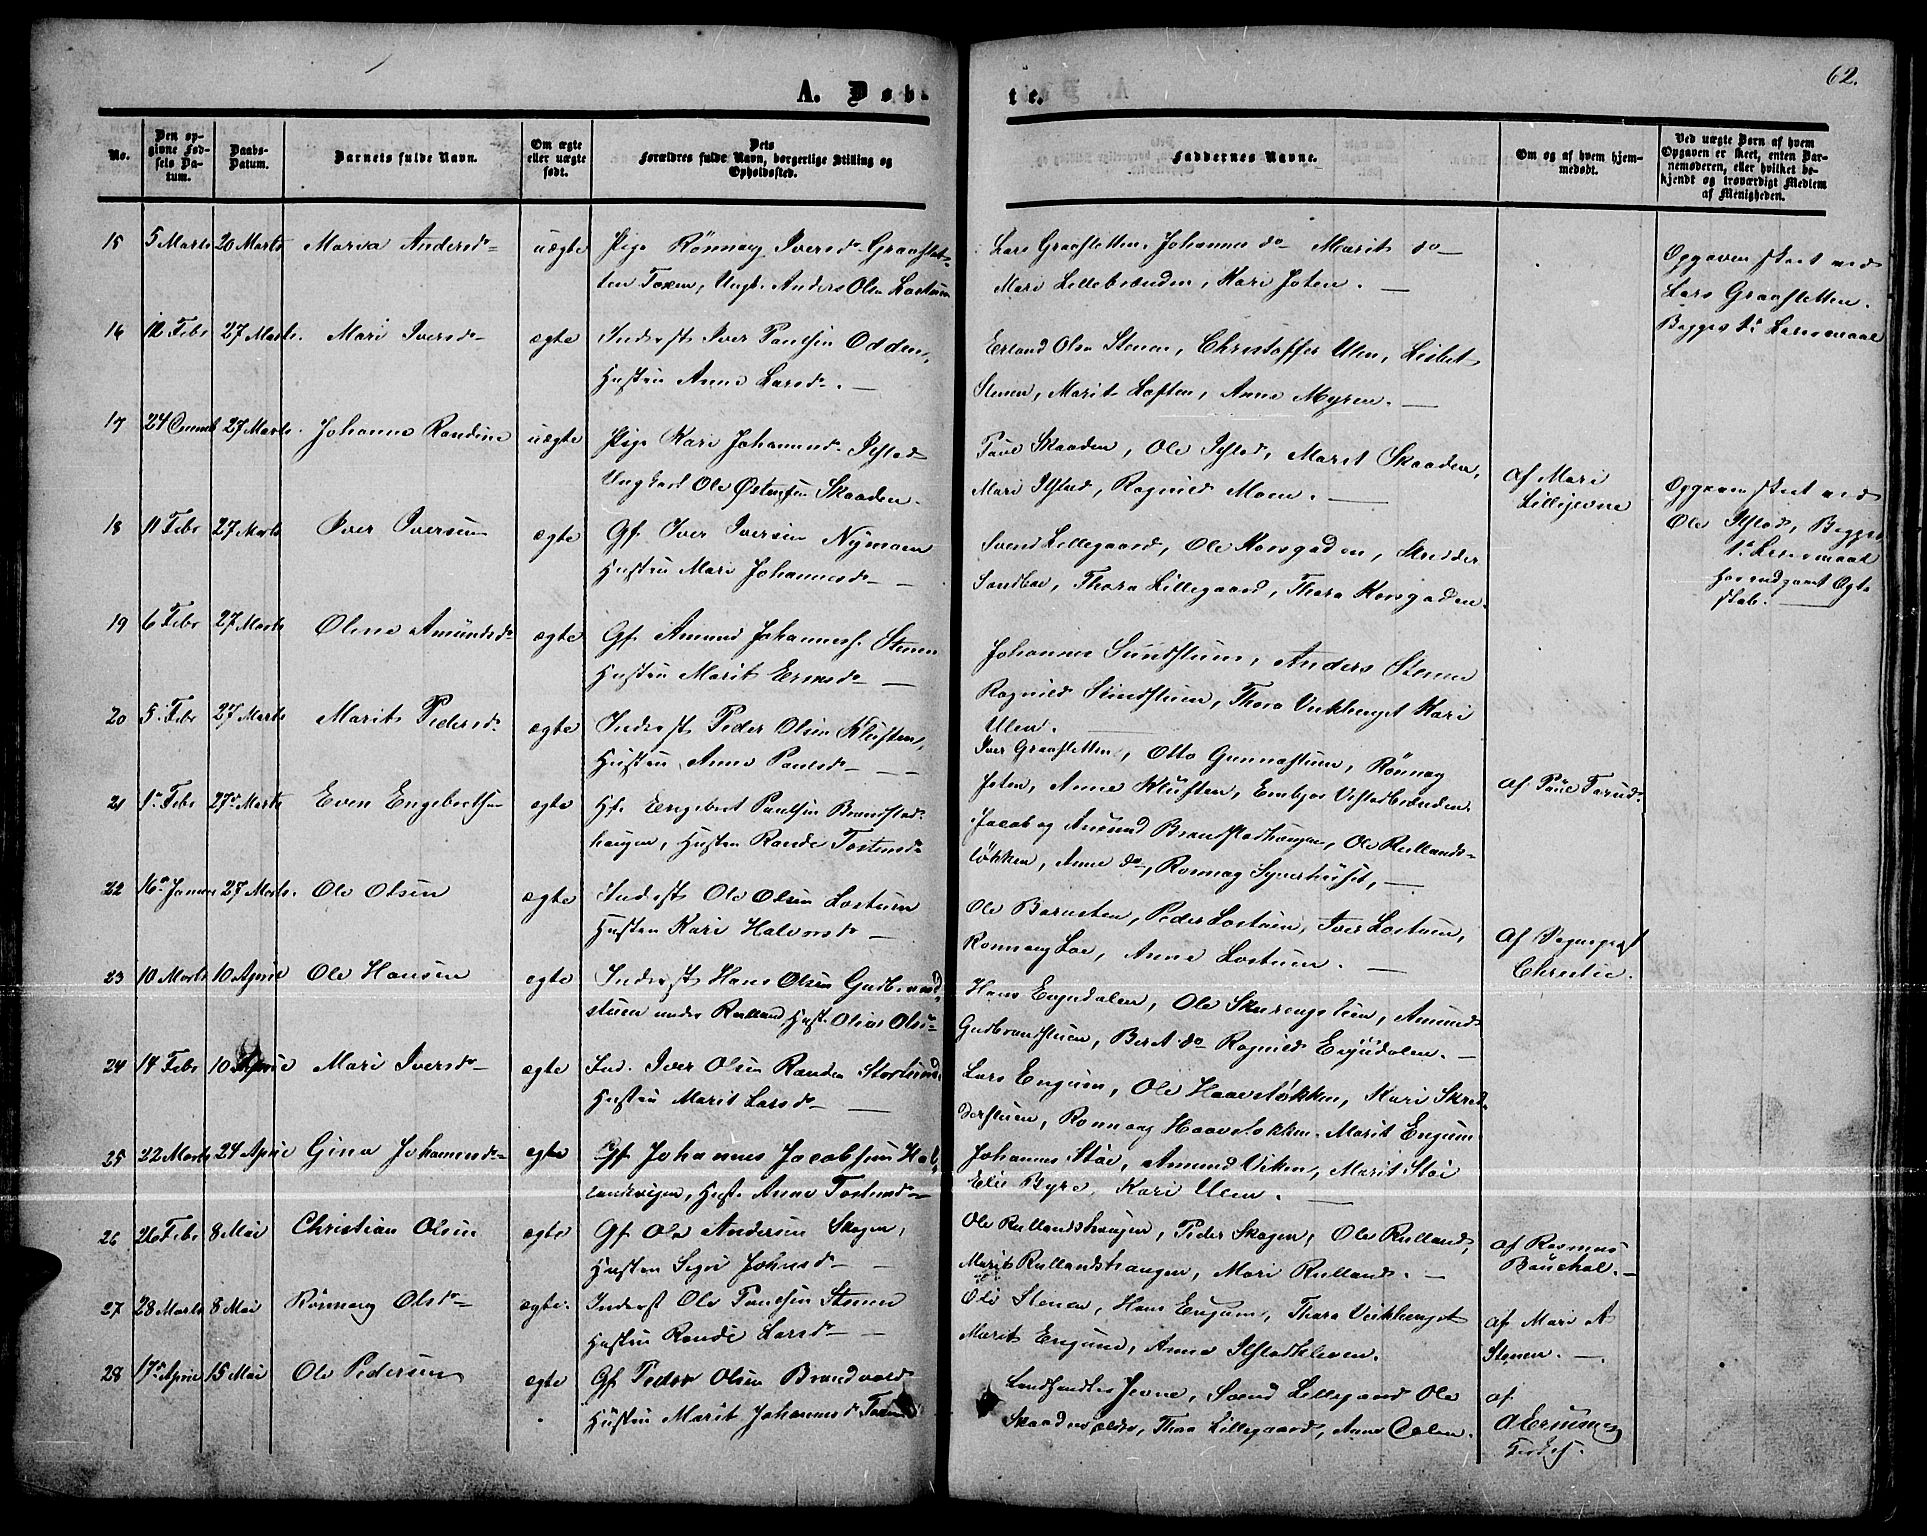 62.
A. Døbte.
No.
Den opgivne Fødsels Datum.
Daabs-Datum.
Barnets fulde Navn.
Om ægte eller uægte født.
Dets Forældres fulde Navn, borgerlige Stilling og Opholdssted.
Faddernes Navne.
Om og af hvem hjemmedøbt.
Ved uægte Børn af hvem Opgaven er skeet, enten Barnemoderen, eller hvilket bekjendt og troværdigt Medlem af Menigheden.
15 5 Marts 20 Marts Maria Andersd- uægte Pige Rönnaug Iversd- Graaslet-
ten Toxen, Ungk. Anders Olsen Lostuen
Lars Graasletten, Johannes do Marit do
Mari Lillebrænden, Kari Joten. —
Opgaven skeet ved
Lars Graasletten.
Begges 1ste Leiermaal
16 12 Febr 27 Marts. Mari Iversd- ægte Inderst Iver Paulsen Odden,
Hustru Anne Larsd-. —
Erland Olsen Stenen, Christoffer Ulen, Lisbet
Stenen, Marit Loften, Anne Myren. —
17 27 Marts. Johanne Randine uægte Pige Kari Johannesd- Ilstad
Ungkarl Ole Østensen Skaaden.
Paul Skaaden, Ole Ilstad, Marit Skaaden,
Mari Ilstad, Ragnild Moen. —
af Mari
Lillijevne
Opgaven skeet ved
Ole Ilstad, Begges
1ste Leiermaal
har indgaaet Ægte
skab. —
18 11 Febr 27 Marts Iver Iversen ægte Gf. Iver Iversen Nymoen
Hustru Mari Johannesd- —
Svend Lillegaard, Ole Korsgaden, Skedder
Sandboe, Thora Lillegaard, Thora Korsgaden.
19 6 Febr 27 Marts Oline Amundsd- ægte Gf. Amund Johanness. Stenen
Hustru Marit Ersd- —
Johannes Sundstuen, Anders Stenen
Ragnild Sundstuen, Thora Veikleenget Kari
Ulen. —
20 5. Febr 27 Marts Marit Pedersd- ægte Inderst Peder Olsen Kleiften,
Hustru Anne Paulsd- —
Iver Graasletten, Otto Gunnastuen, Rönnog
Joten, Anne Kluften, Embjør Ulstadbrænden.
21 1ste Febr 27de Marts Even Engebretsen ægte Hf. Engebret Paulsen Brandstad-
haugen, Hustru Rande Tostensd-
Jacob og Amund Brandstadhaugen, Ole Rullands-
løkken, Anne do, Ronnog Synerhuset, —
af Paul Forud-
22 16de Januar 27 Marts. Ole Olsen ægte Inderst Ole Olsen Lostuen
Hustru Kari Halvorsd- —
Ole Baarusten, Peder Lostuen, Iver Lostuen,
Ronnaug Loe, Anne Lostuen. —
af Sognepræst
Christie.
23 10 Marts 10 April Ole Hansen ægte Inderst Hans Olsen Gudbrand-
stuen under Rulland Hust. Olia Olsd-
Hans Engudalen, Ole Skurengstuen, Amund
Gudbrandstuen, Berit do Ragnild Engudalen. —
24 14 Febr 10 April Mari Iversd- ægte Ind. Iver Olsen Randen Storlund
Hustru Marit Larsd- —
Lars Engum, Ole Haaveløkken, Mari Skred-
derstuen, Ronnaug Haaveløkken. Marit Engum
25 22 Marts 24 April Gina Johannesd- ægte Gf. Johannes Jacobsen Hov-
landsvegen, Hust. Anne Tostensd-
Johannes Stoi, Amund Viken, Marit Stoi
Eli Byre, Kari Ulen. —
26 26 Febr 8 Mai Christian Olsen ægte Gf. Ole Andersen Skogen,
Hustru Sigri Johnsd- —
Ole Rullandshaugen, Peder Skogen, Ole Rulland,
Marit Rullandshaugen, Mari Rulland. —
af Rasmus
Bouskal. —
27 28 Marts 8 Mai Rönnaug Olsd- ægte. Inderst Ole Paulsen Stenen
Hustru Rande Larsd- —
Ole Stenen, Hans Engum, Thora Veikleenget
Marit Engum, Anne Ilstadkleven.
af Mari A
Stenen. —
28 17de April 15 Mai Ole Pedersen ægte Gf. Peder Olsen Brandvold
Hustru Marit Johannesd-
Landhandler Jevne, Svend Lillegaard Ole
Skaaden ældre, Thora Lillegaard, Anne
af